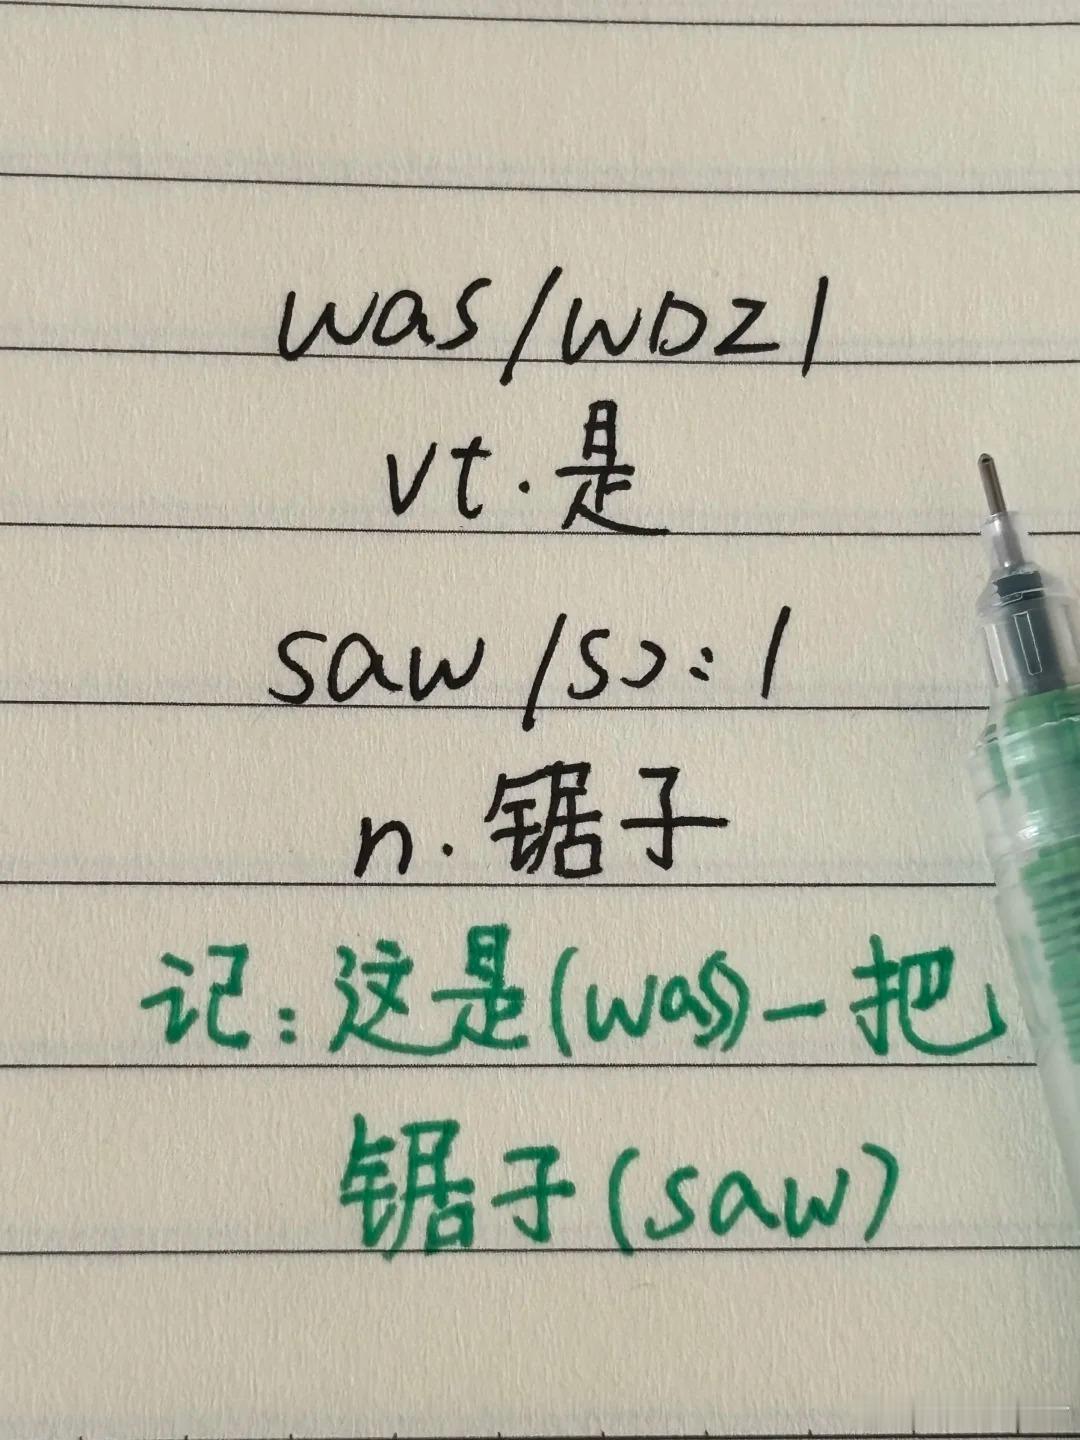 was /wɒz/
vt. 是
saw /sɔ:/
n. 锯子
记: 这是(was)一把
锯子(saw)